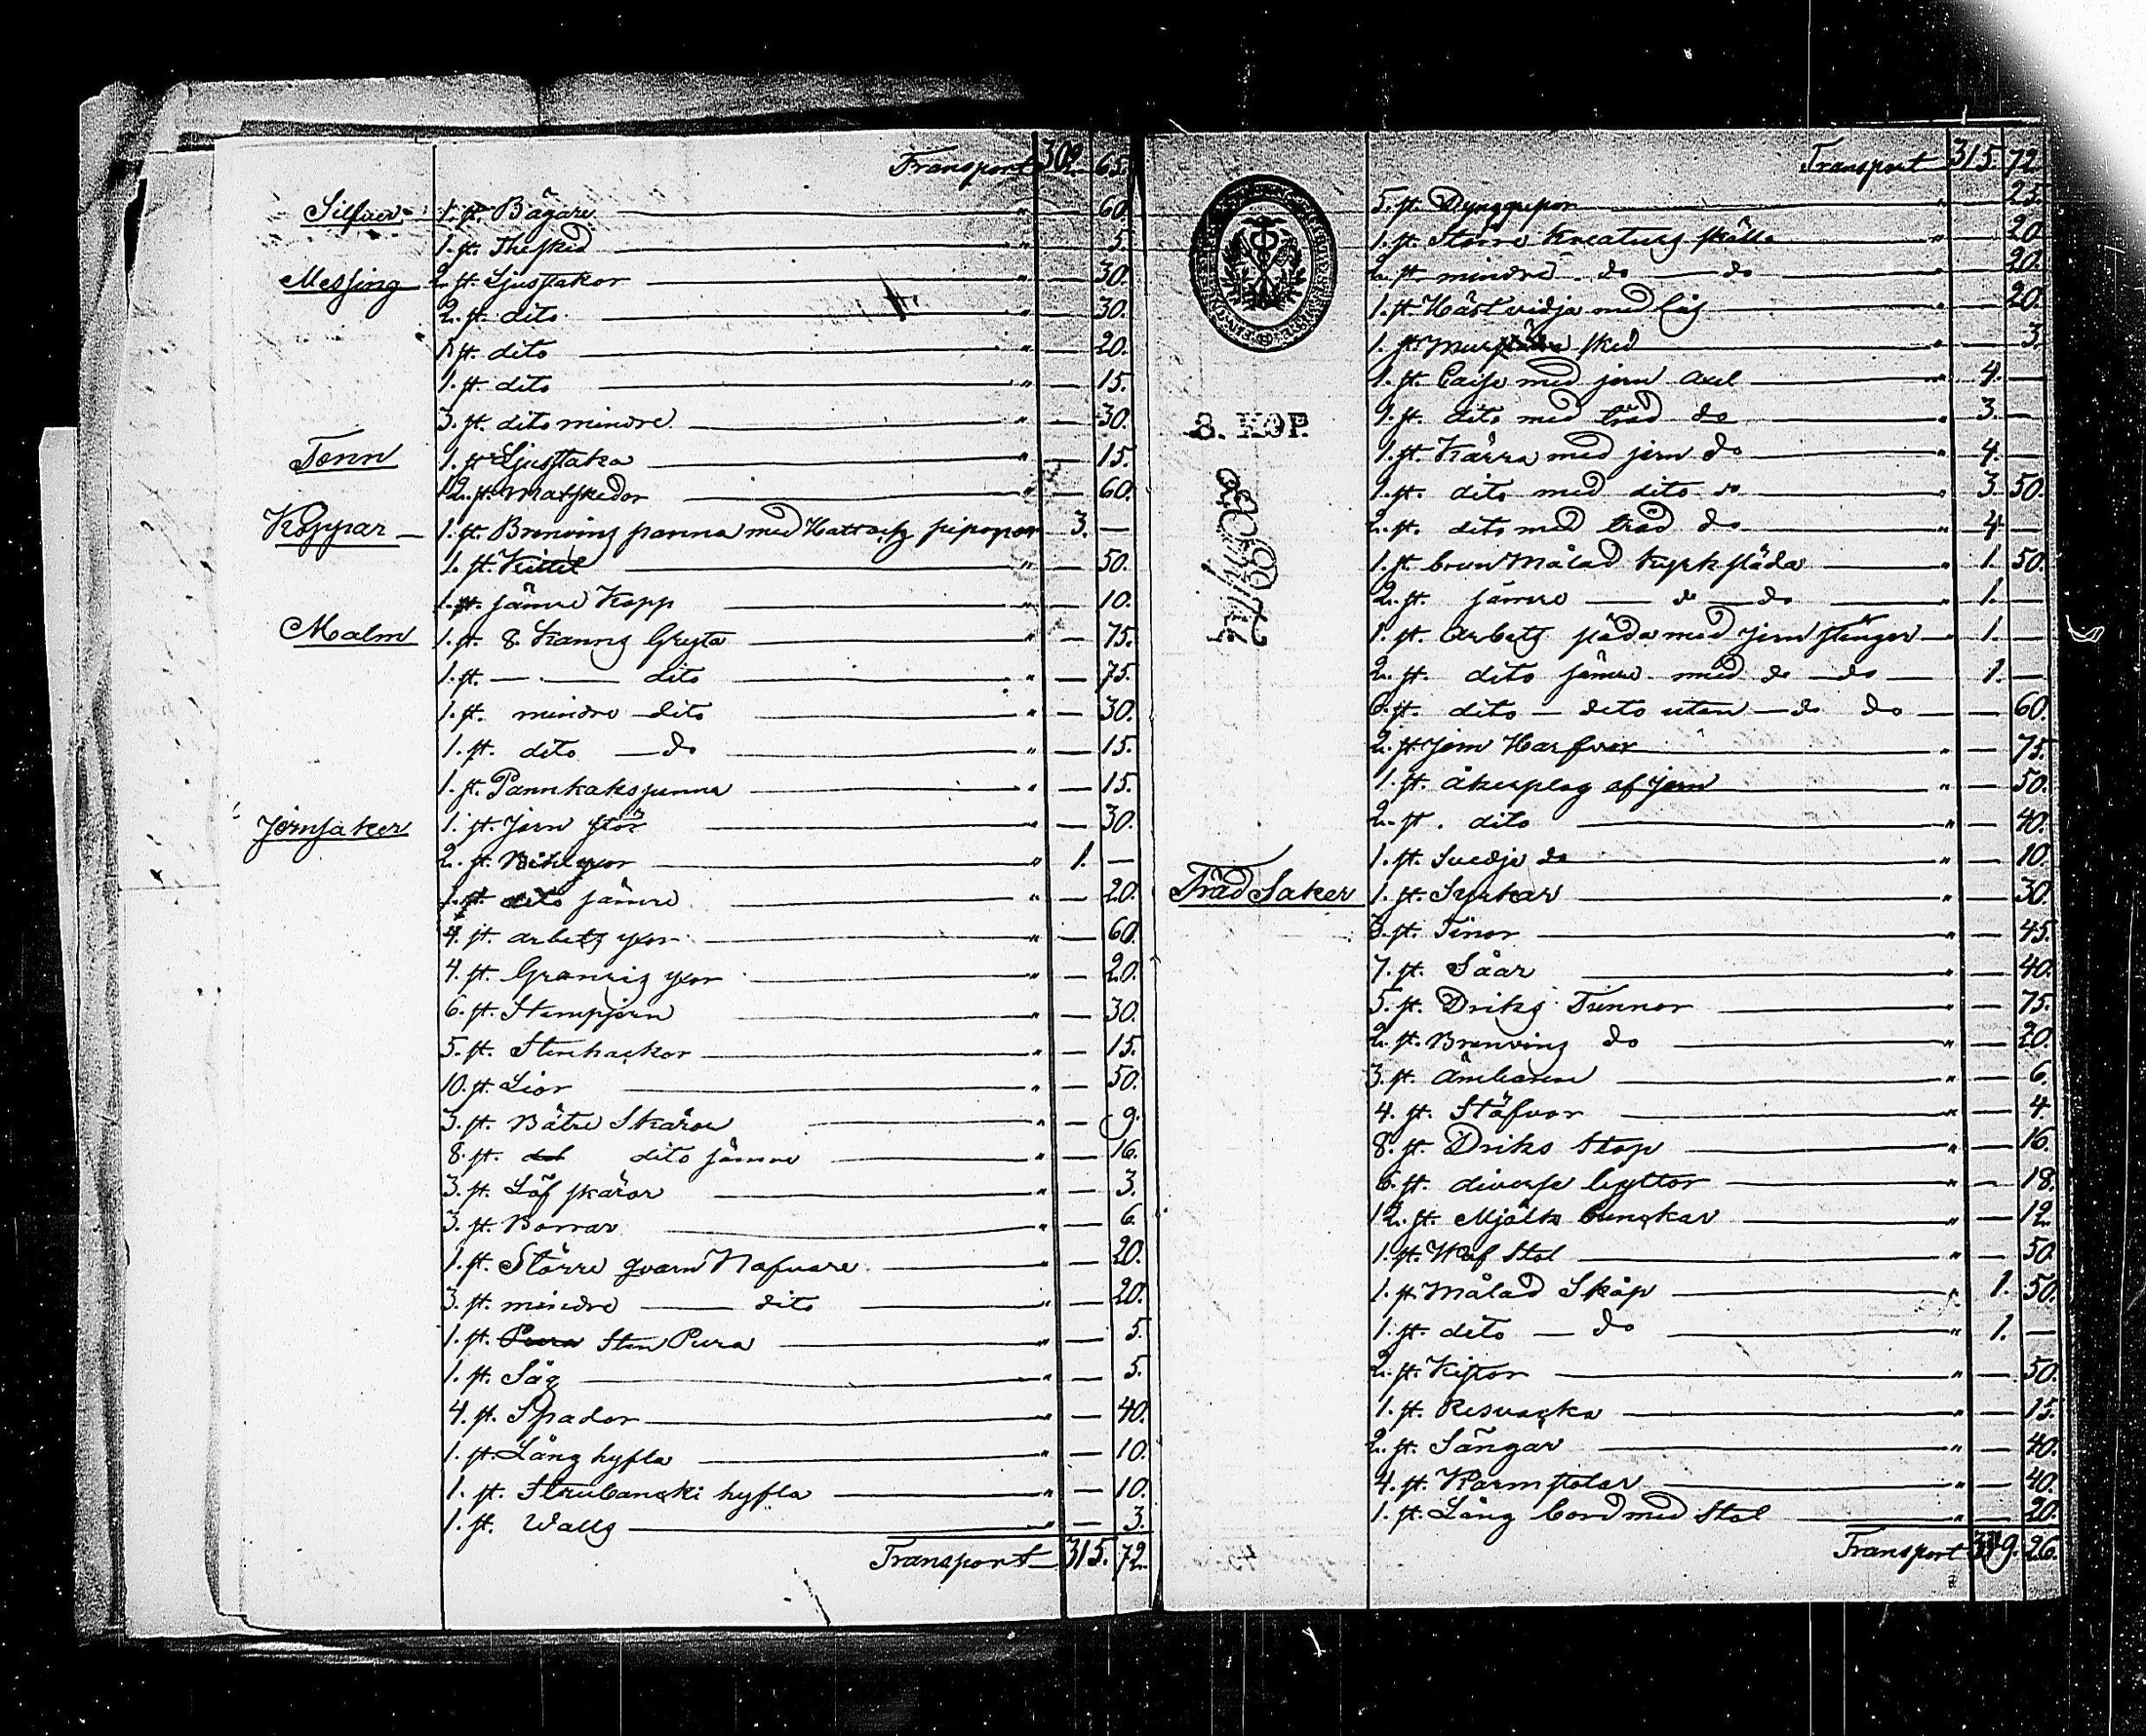 Transport 302. 65.
Silfver 1. st. Bägare " — 60.
1. st. Thesked " — 5.
Messing 2. st. Ljusstakor " — 30.
2. st. dito " — 30.
1 st. dito " — 20.
1. st. dito " — 15.
3. st. dito mindre " — 30.
Tenn 1. st Ljusstaka " — 15.
12. st. Matskedor " — 60.
Koppar 1. st. Brenvins panna med Hatt och pipopor 3. —
1. st. Kittel " — 50.
1. st. sämre Kopp " — 10.
Malm 1. st. 8. Kanns Gryta " — 75.
1. st. — dito " — 75.
1. st. mindre dito " — 30.
1. st. dito — do " — 15.
1. st. Pannkakspanna " — 15.
Jernsaker 1. st. Jern stör " — 30.
2. st. Bilyxor " 1. —
1. st dito sämre " — 20.
4. st. arbets yxor " — 60.
4. st. Granris yxor " — 20.
6. st. Stempjern " — 30.
5. st. Stenhackor " — 15.
10. st. Lior " — 50.
3. st. Bätre Skäror " — 9.
8. st. dito sämre " — 16.
3. st. Löf skäror " — 3.
3. st. Borrar " — 6.
1. st. Större qvarn Nafvare " — 20.
3. st. mindre — dito " — 20.
1. st. Pura Sten Pura " — 5.
1. st. Såg " — 5.
4. st. Spador " — 40.
1. st. Lång hyfla " — 10.
1. st. Strubancki hyfla " — 10.
1. st. Walls " — 3.
Transport 315. 72.
Transport 315. 72
5. st. Dynggrepor " — 25.
1. st. Större Kreaturs skälla " — 20.
2. st mindre do — do — 20.
1. st. Häst vidja med Lås " — 20.
1. st. Mur sked " — 3.
1. st. Caise med jern axel " 4. —
1. st. dito med träd do " 3. —
8. KOP.
1. st. Kärra med jern do " 4. —
1. st. dito med dito do " 3 50.
2. st. dito med träd do " 4 —
1. st. brun Målad Kyrk släda " 1. 50.
2. st. sämre — do — do 1. —
1. st. Arbets släda med jern stänger 1. —
2. st. dito sämre med do — do 1. —
6. st. dito — dito utan — do do — 60.
2. st. jern Harfvar " — 75.
1. st. åkerplog af jern " — 50.
2. st. dito " — 40.
1. st. Svedje do " — 10.
Träd Saker 1. st. Syrkar " — 30.
3. st. Tinor " — 45.
7. st. Såar " — 40.
5. st. Driks Tunnor " — 75.
2. st. Brenvins do " — 20.
3. st. ämbaren " — 6.
4. st. Stäfvor " — 4.
8. st. Driks Stop " — 16.
6. st. diverse byttor " — 18.
12. st. Mjölk bunckar " — 12.
1. st. Wäf Stol " — 50.
1. st. Målad Skåp " 1. 50.
1. st. dito — do " 1. —
2. st. Kistor " — 50.
1. st. Resvacka " — 15.
2. st. Sängar " — 40.
4. st. Karmstolar " — 40.
1. st. Lång bord med Stol " — 20.
Transport 26.